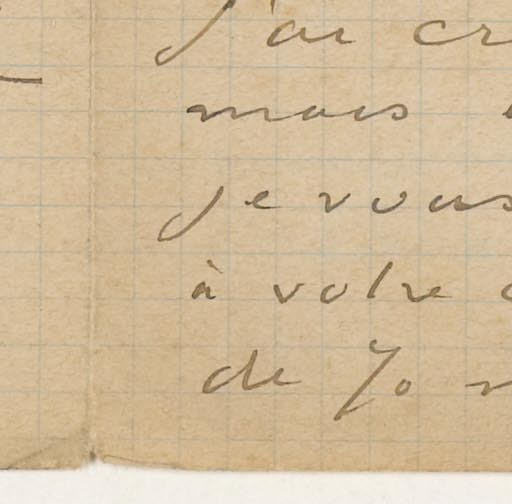 J'ai cr
mais
je vous
à votre
de 70